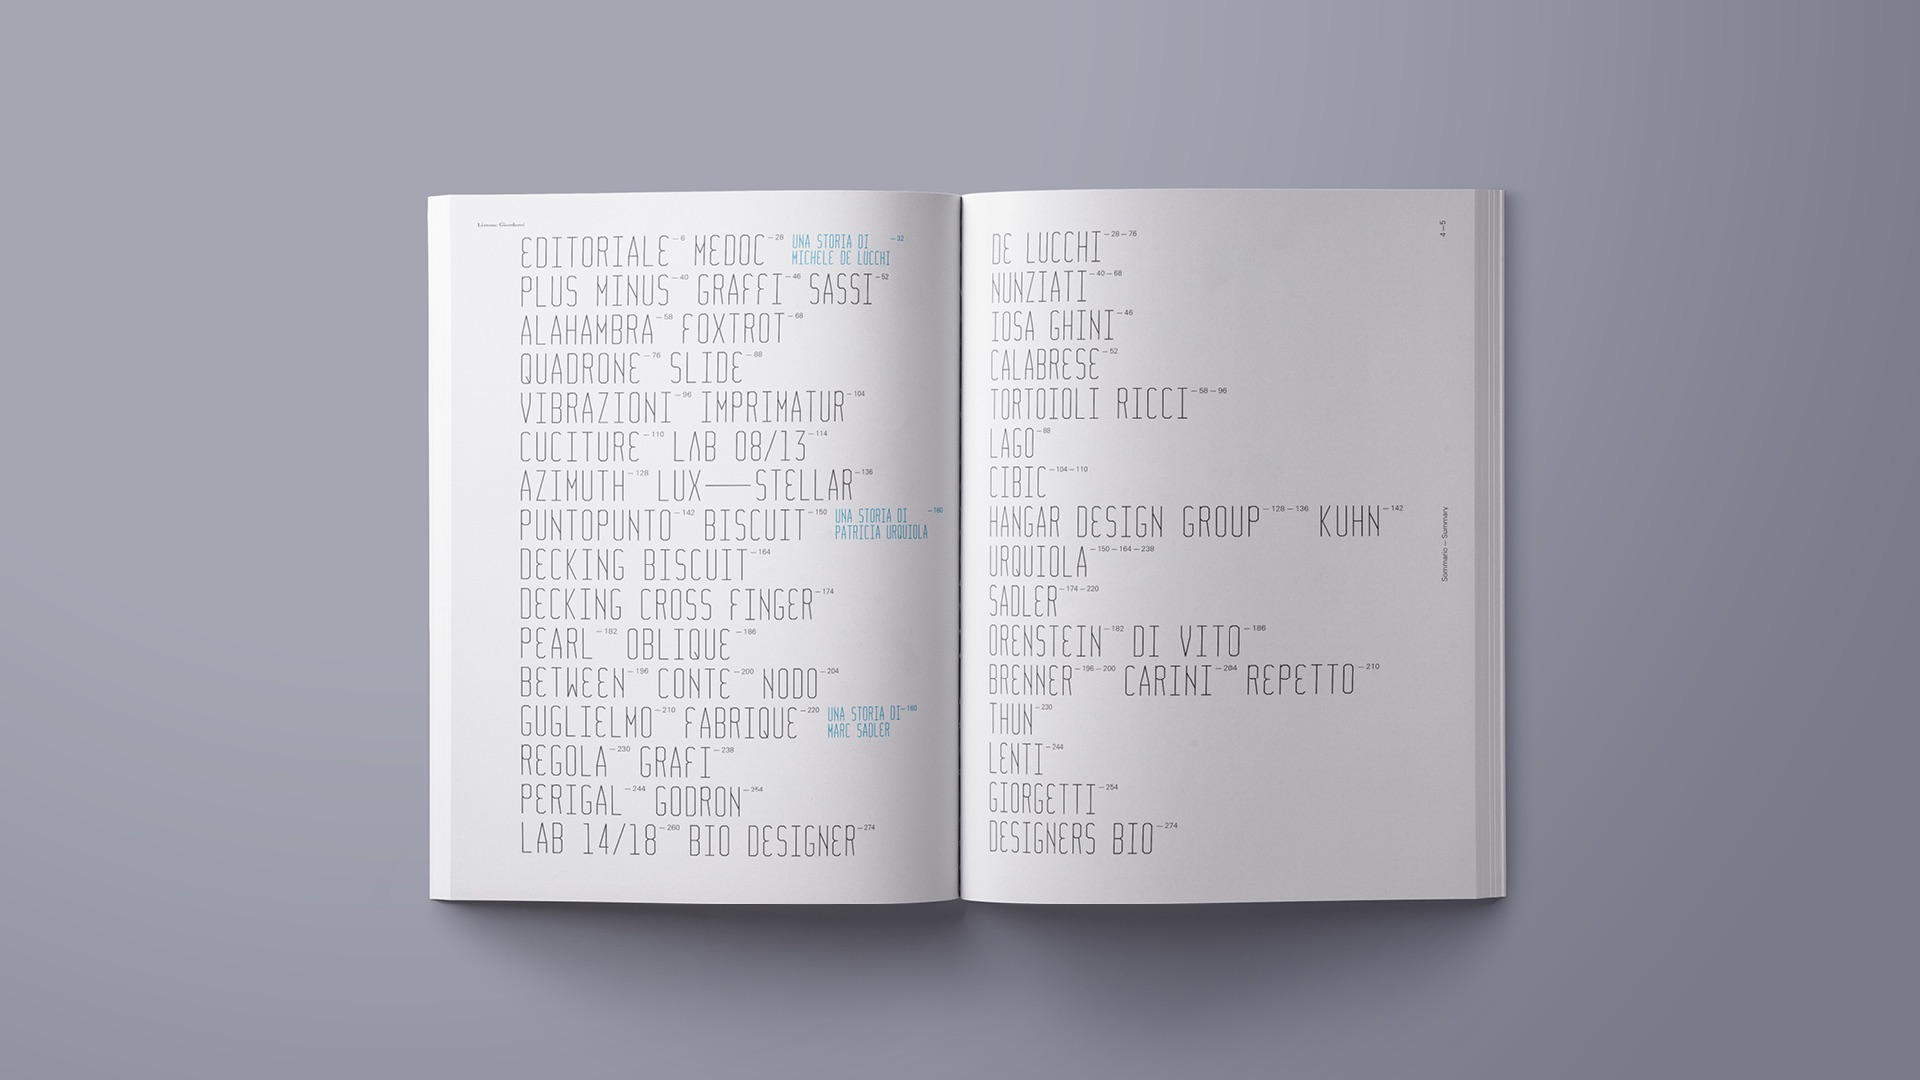 Listone Giordano
EDITORIALE—6 MEDOC—28 UNA STORIA DI —32
MICHELE DE LUCCHI
PLUS MINUS—40 GRAFFI—46 SASSI—52
ALAHAMBRA—58 FOXTROT—68
QUADRONE—76 SLIDE—88
VIBRAZIONI—96 IMPRIMATUR—104
CUCITURE—110 LAB 08/13—114
AZIMUTH—128 LUX——STELLAR—136
PUNTOPUNTO—142 BISCUIT—150 UNA STORIA DI —160
PATRICIA URQUIOLA
DECKING BISCUIT—164
DECKING CROSS FINGER—174
PEARL—182 OBLIQUE—186
BETWEEN—196 CONTE—200 NODO—204
GUGLIELMO—210 FABRIQUE—220 UNA STORIA DI—160
MARC SADLER
REGOLA—230 GRAFI—238
PERIGAL—244 GODRON—254
LAB 14/18—260 BIO DESIGNER—274
DE LUCCHI—28—76
NUNZIATI—40—68
IOSA GHINI—46
CALABRESE—52
TORTOIOLI RICCI—58—96
LAGO—88
CIBIC—104—110
HANGAR DESIGN GROUP—128—136 KUHN—142
URQUIOLA—150—164—238
SADLER—174—220
ORENSTEIN—182 DI VITO—186
BRENNER—196—200 CARINI—204 REPETTO—210
THUN—230
LENTI—244
GIORGETTI—254
DESIGNERS BIO—274
4—5
Sommario — Summary